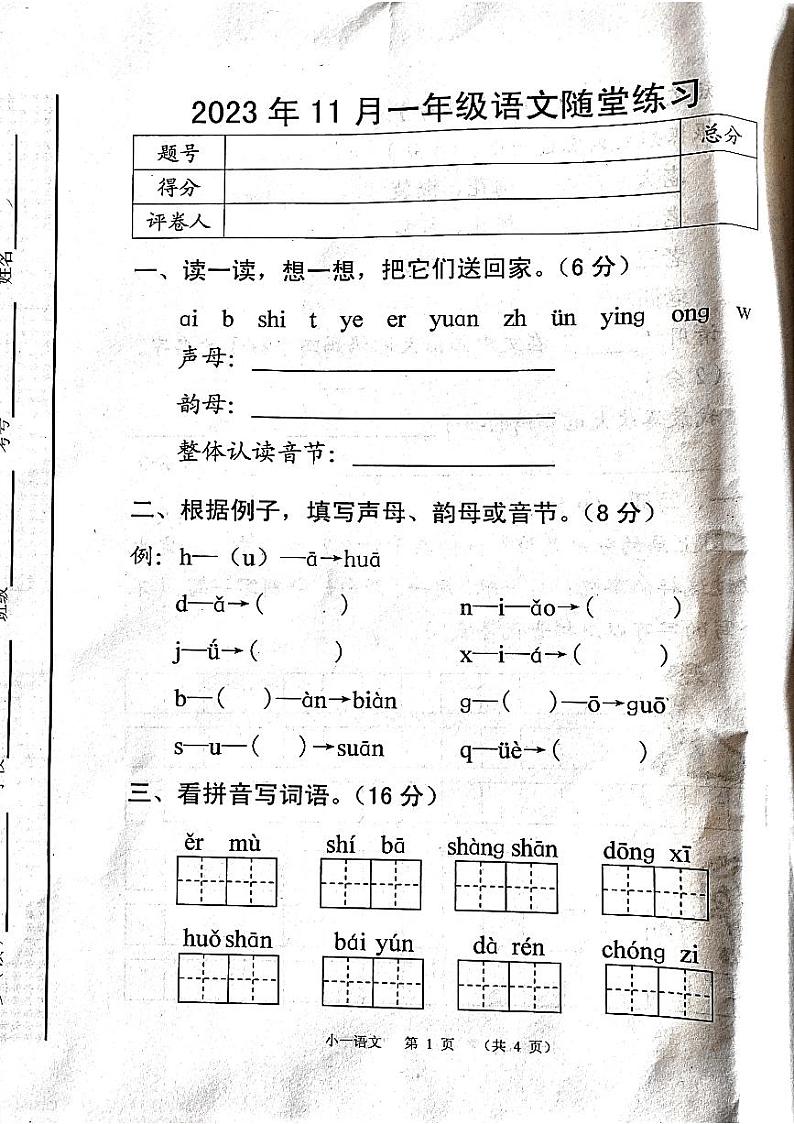 2023年11月一年级语文随堂练习
题号 总分
得分
评卷人
一、读一读，想一想，把它们送回家。（6分）
ɑi b shi t ye er yuɑn zh ün ying ong w
声母：
韵母：
整体认读音节：
二、根据例子，填写声母、韵母或音节。（8分）
例：h—（u）—ā→huā
d—ǎ→( ) n—i—ǎo→( )
j—ǘ→( ) x—i—á→( )
b—( )—àn→biàn g—( )—ō→guō
s—u—( )→suān q—üè→( )
三、看拼音写词语。（16分）
ěr mù shí bā shàng shān dōng xī
huǒ shān bái yún dà rén chóng zi
小一语文 第1页 （共4页）
姓名
考号
班级